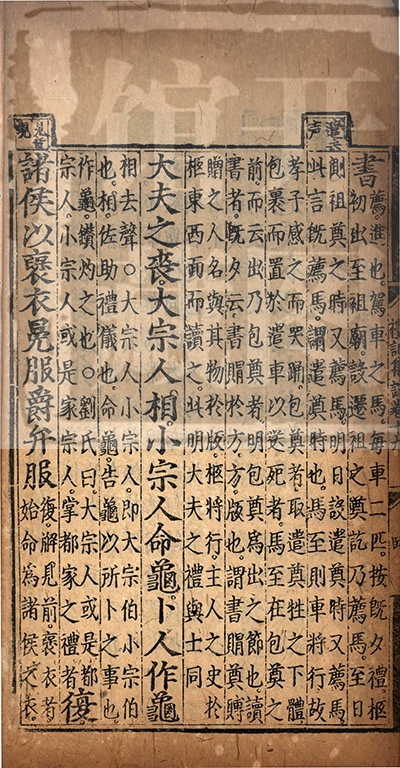 遣去声
書薦進也。駕車之馬。每車二匹。按既夕禮。柩
初出至祖廟。設遷祖之奠訖。乃薦馬。至日
側祖奠之時。又薦馬。明日設遣奠時。又薦馬。
此言既薦馬。謂遣奠時也。馬至則車將行。故
孝子感之而哭踊。包奠者。取遣奠牲之下體。
包裹而置於遣車以送死者。馬至在包奠之
前。而云出乃包奠者。明包奠爲出之節也。讀
書者。既夕云。書賵於方。方。版也。謂書賵奠賻
贈之人名與其物於版。柩將行。主人之史於
柩東西面而讀之。此明大夫之禮與士同
大夫之喪。大宗人相。小宗人命龜。卜人作龜
相去聲○大宗人小宗人。即大宗伯小宗伯
也。相。佐助禮儀也。命龜。告龜以所卜之事也。
作龜。鑽灼之也○劉氏曰。大宗人或是都
宗人。小宗人或是家宗人。掌都家之禮者。復
諸侯以褒衣冕服爵弁服復。解見前。褒衣者。
始命爲諸侯之衣。